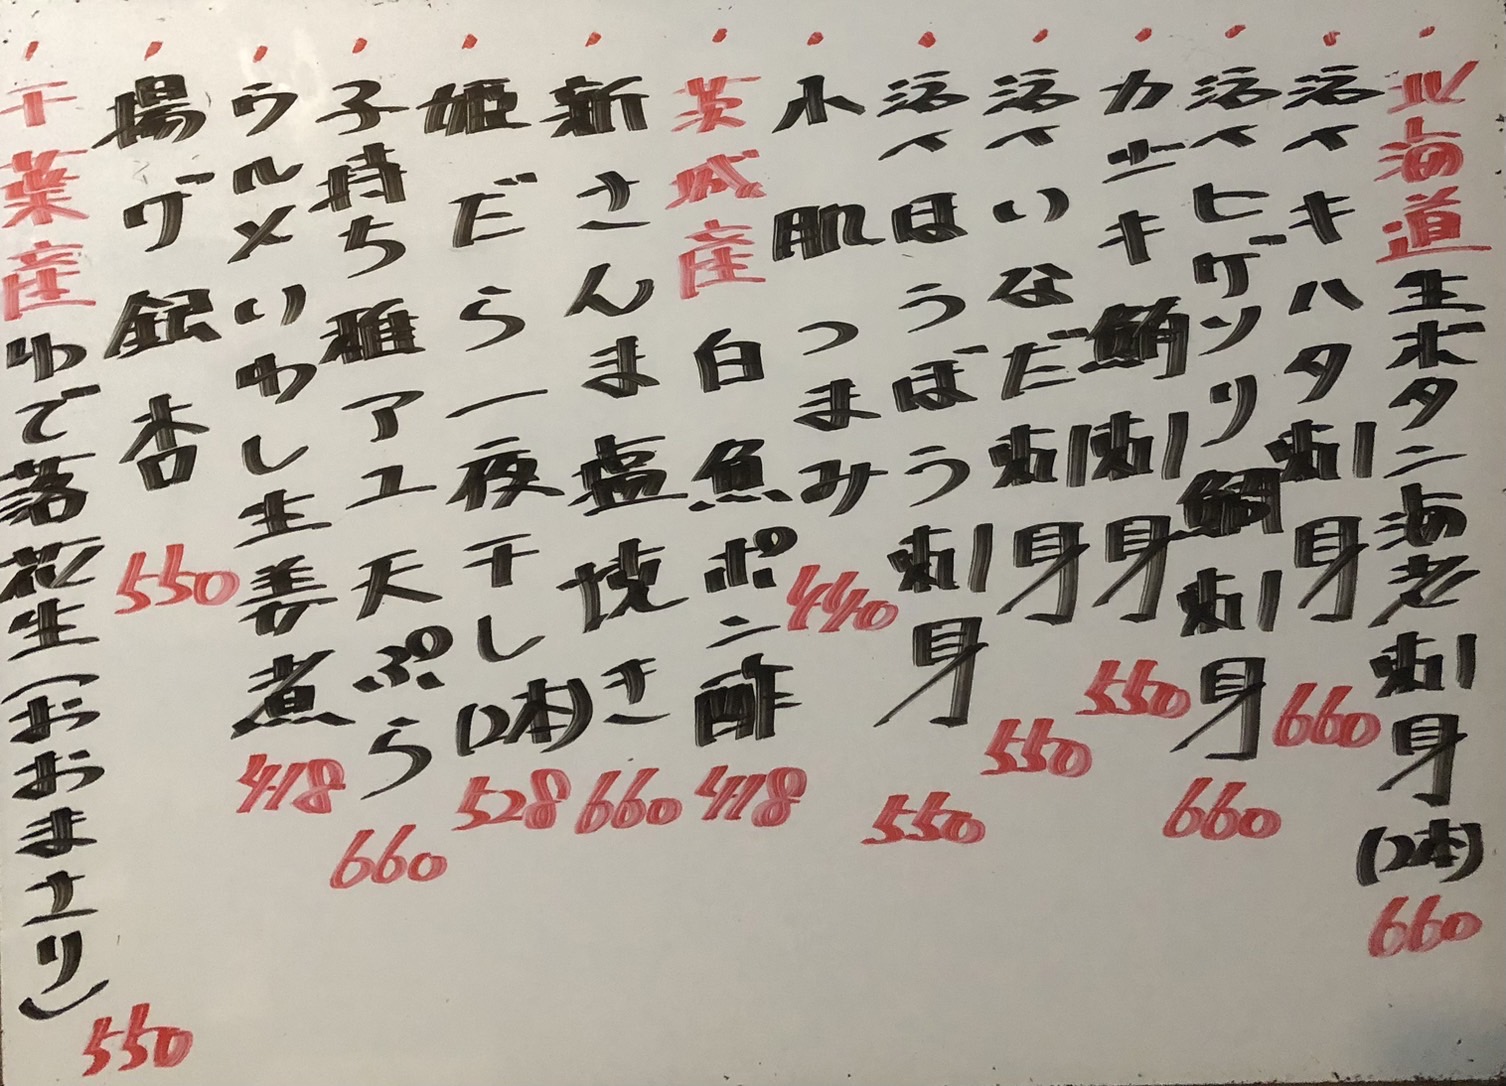 北海道生ボタン海老刺身(2本) 660
活〆キハタ刺身 660
活〆ヒゲソリ鯛刺身 660
カジキ鮪刺身 550
活〆いなだ刺身 550
活〆ほうぼう刺身 550
小肌つまみ 440
茨城産白魚ポン酢 418
新さんま塩焼き 660
姫だら一夜干し(2本) 528
子持ち稚アユ天ぷら 660
ウルメいわし生姜煮 418
揚げ銀杏 550
千葉産ゆで落花生(おおまさり) 550